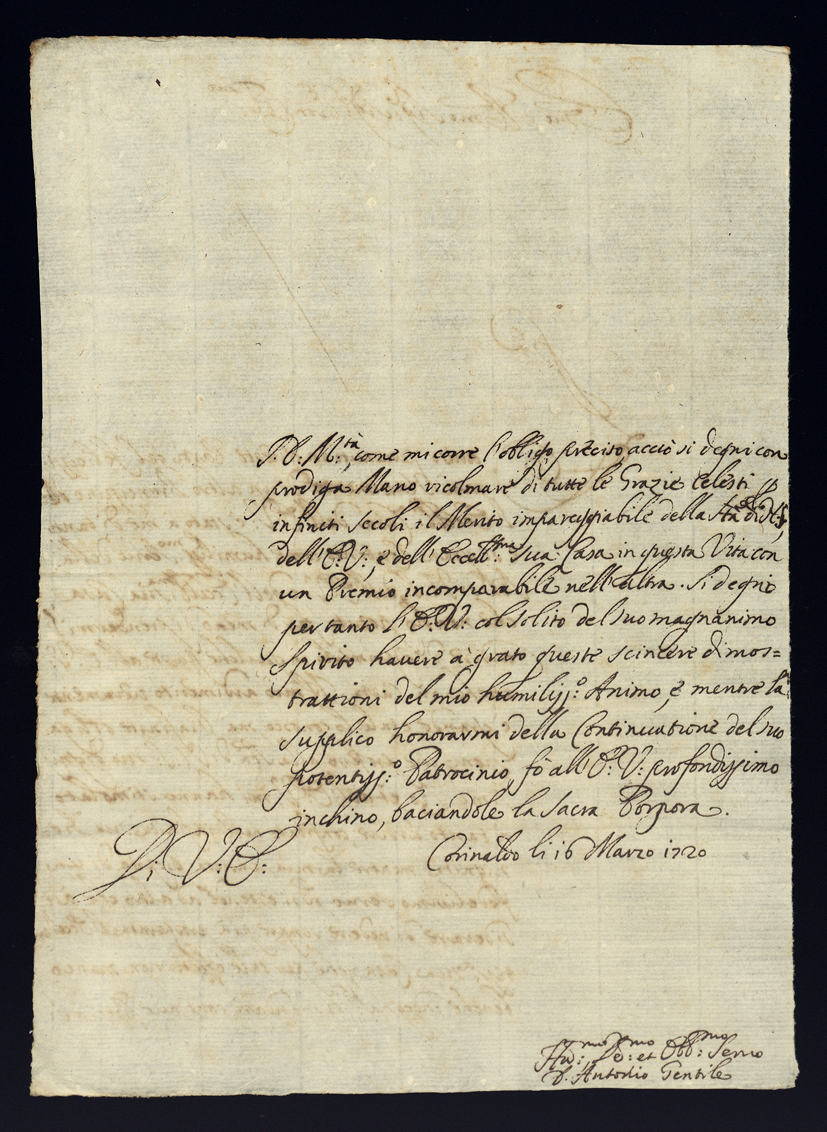 S. D. M.tà, come mi corre l'obbligo preciso, acciò si degni con
prodiga Mano ricolmare di tutte le Grazie Celesti
infiniti secoli il Merito impareggiabile della Stà di
dell'E.V., e dell'Eccell.ma sua Casa in questa Vita con
un Premio incomparabile nell'altra. Si degni
pertanto l'E.V. col solito del suo magnanimo
Spirito havere à grato queste scincere dimos=
trattioni del mio humiliss.o Animo, e mentre la
supplico honorarmi della Continuatione del suo
potentiss.o Patrocinio, fò all'E.V. profondissimo
inchino, baciandole la Sacra Porpora.
D. V. E.
Corinaldo li 16 Marzo 1720
Hu:mo De:mo et Obb:mo Servo
D. Antonio Gentile